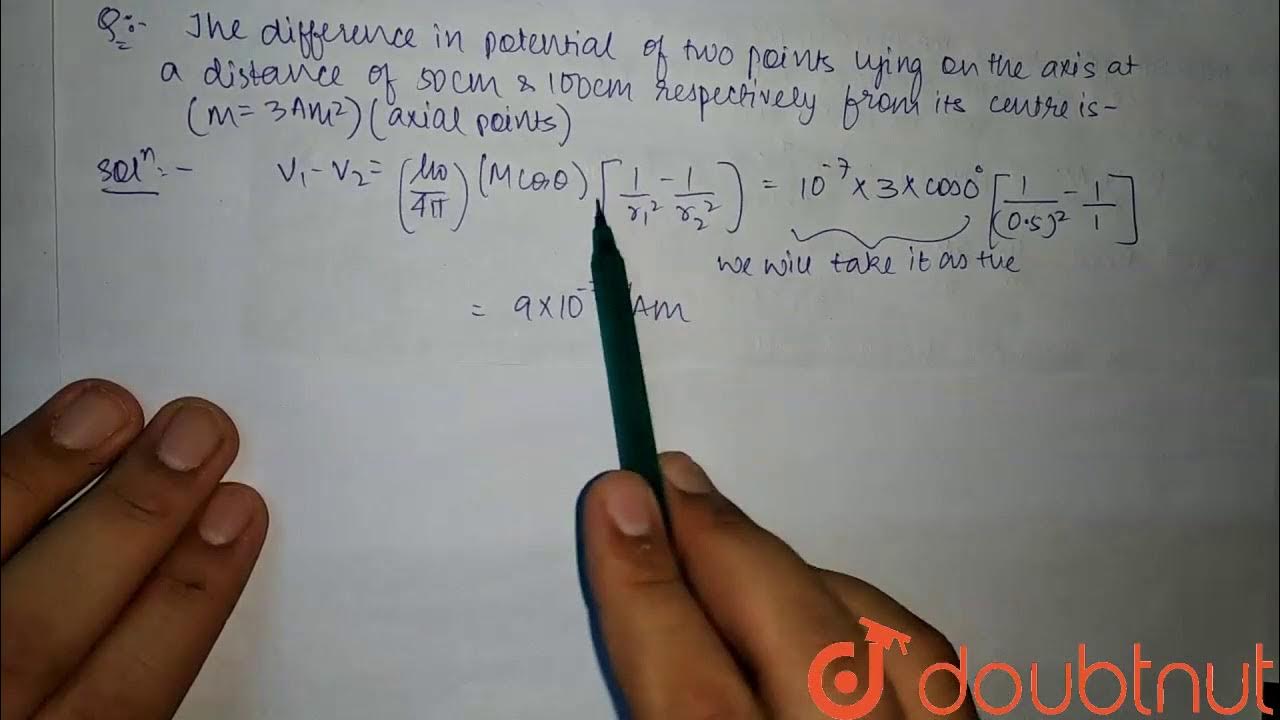 Q:- The difference in potential of two points lying on the axis at
a distance of 50cm & 100cm respectively from its centre is-
(M= 3Am²) (axial points)
Solⁿ:- V₁-V₂= (μ₀/4π) (M cosθ) [1/r₁² - 1/r₂²] = 10⁻⁷ × 3 × cos0° [1/(0.5)² - 1/1]
we will take it as +ve
= 9×10⁻ Am
doubtnut